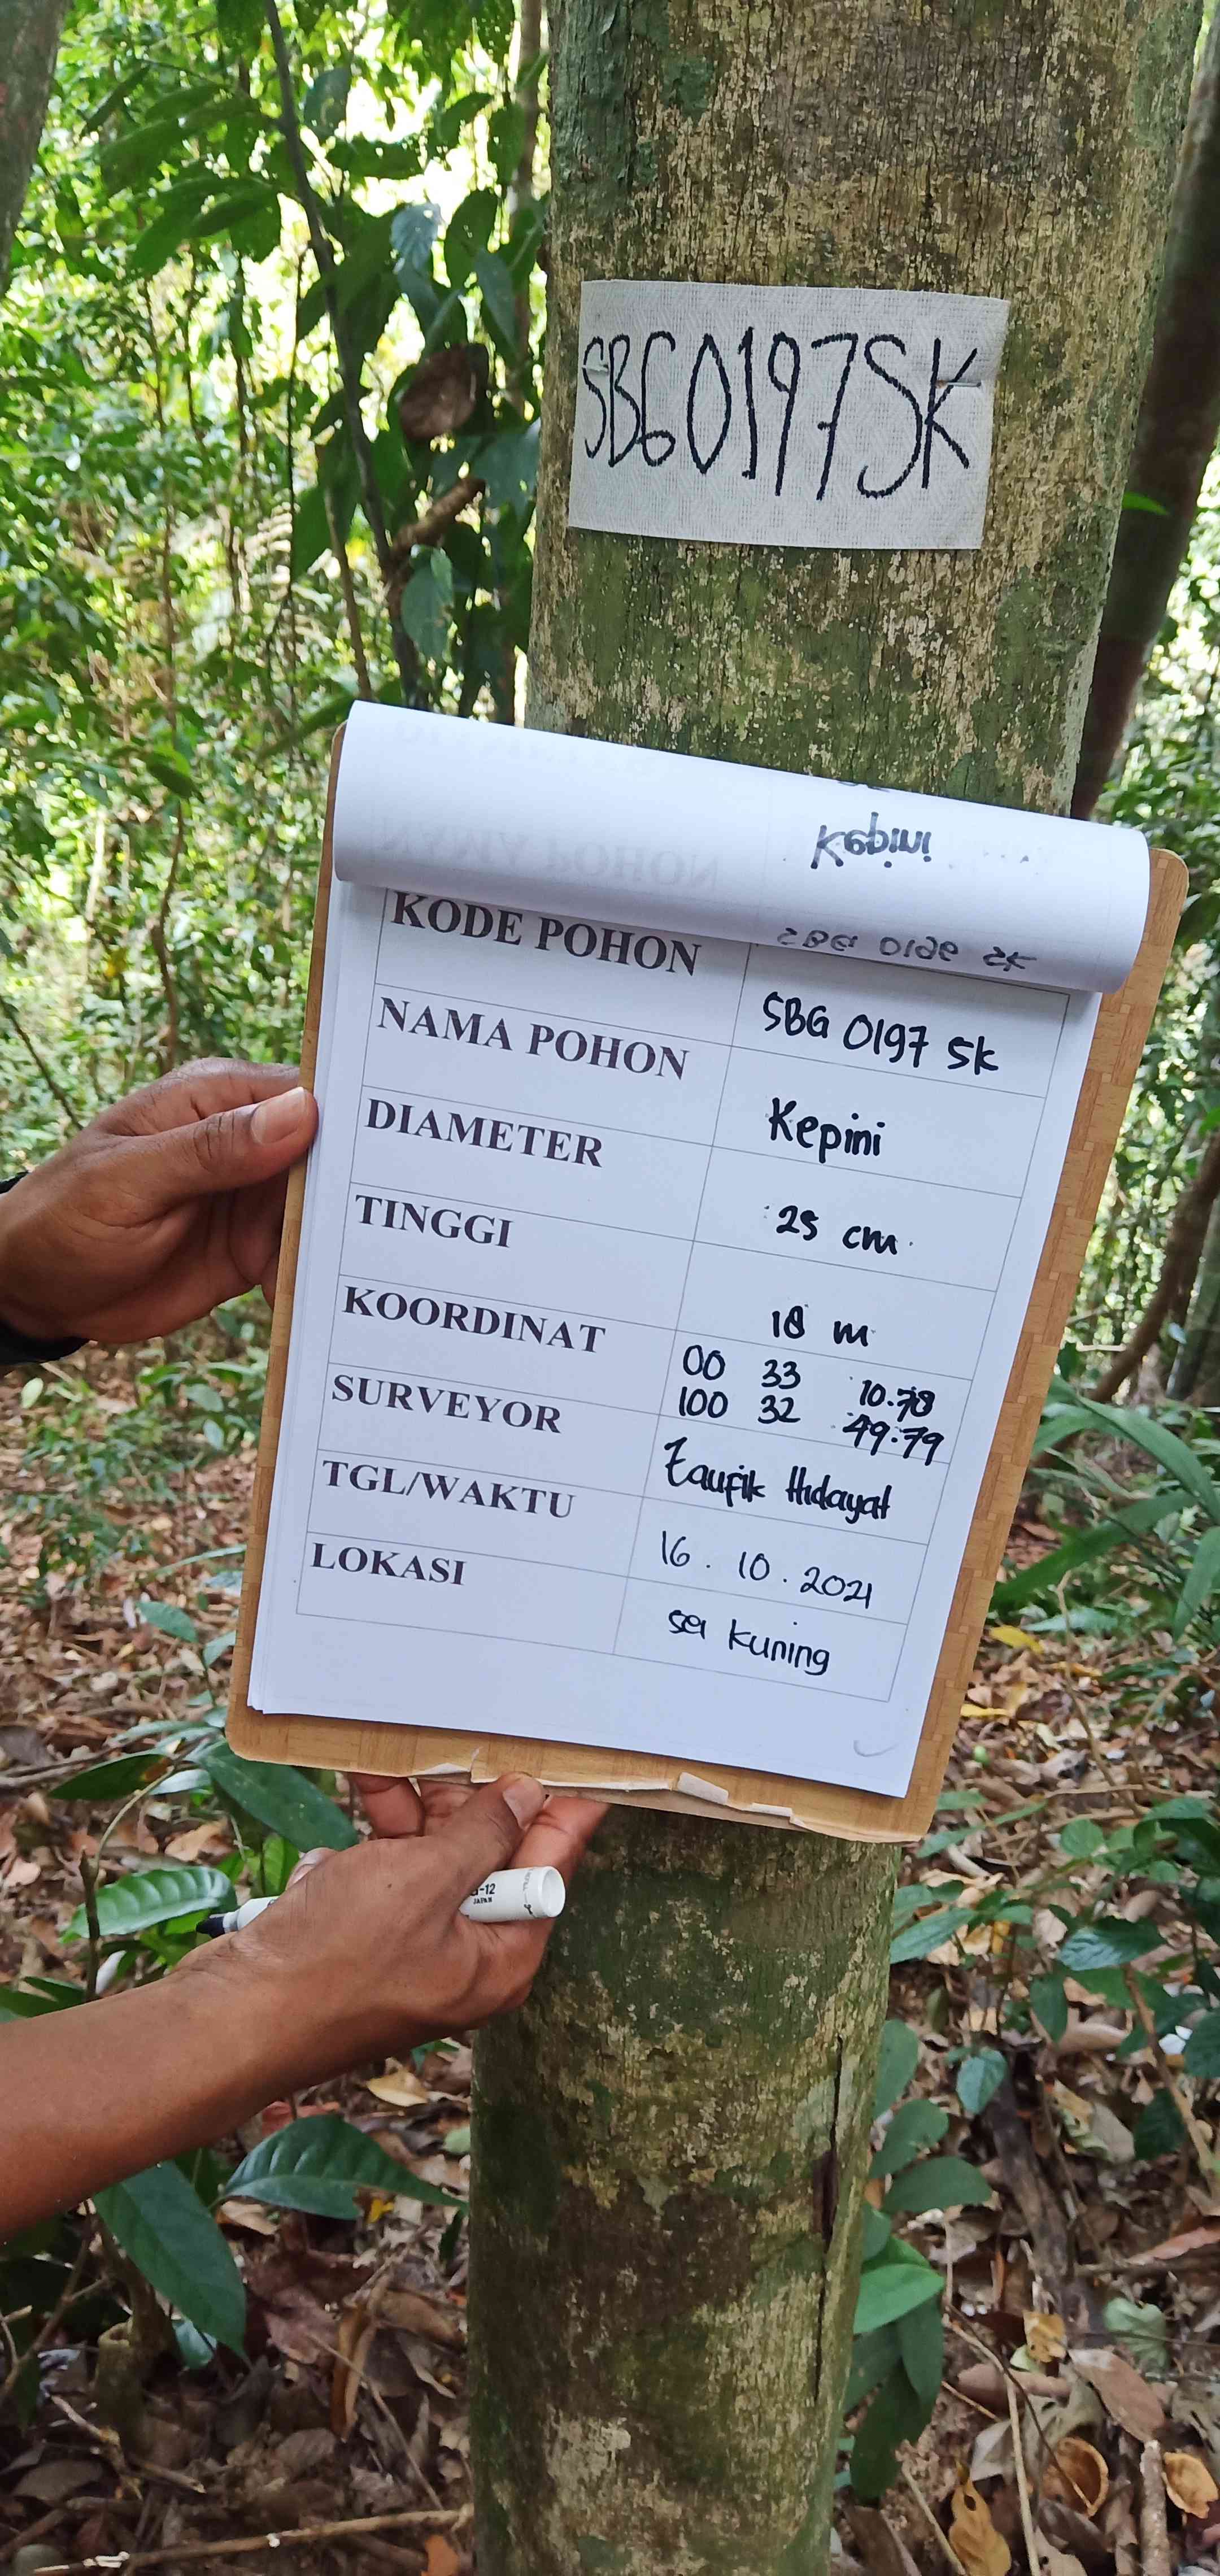 SBG0197SK
Kepini
SBG 0196 SK
KODE POHON SBG 0197 SK
NAMA POHON Kepini
DIAMETER 25 cm
TINGGI 18 m
KOORDINAT 00 33 10.78
100 32 49.79
SURVEYOR Taufik Hidayat
TGL/WAKTU 16.10.2021
LOKASI sei kuning
-12
JAPAN